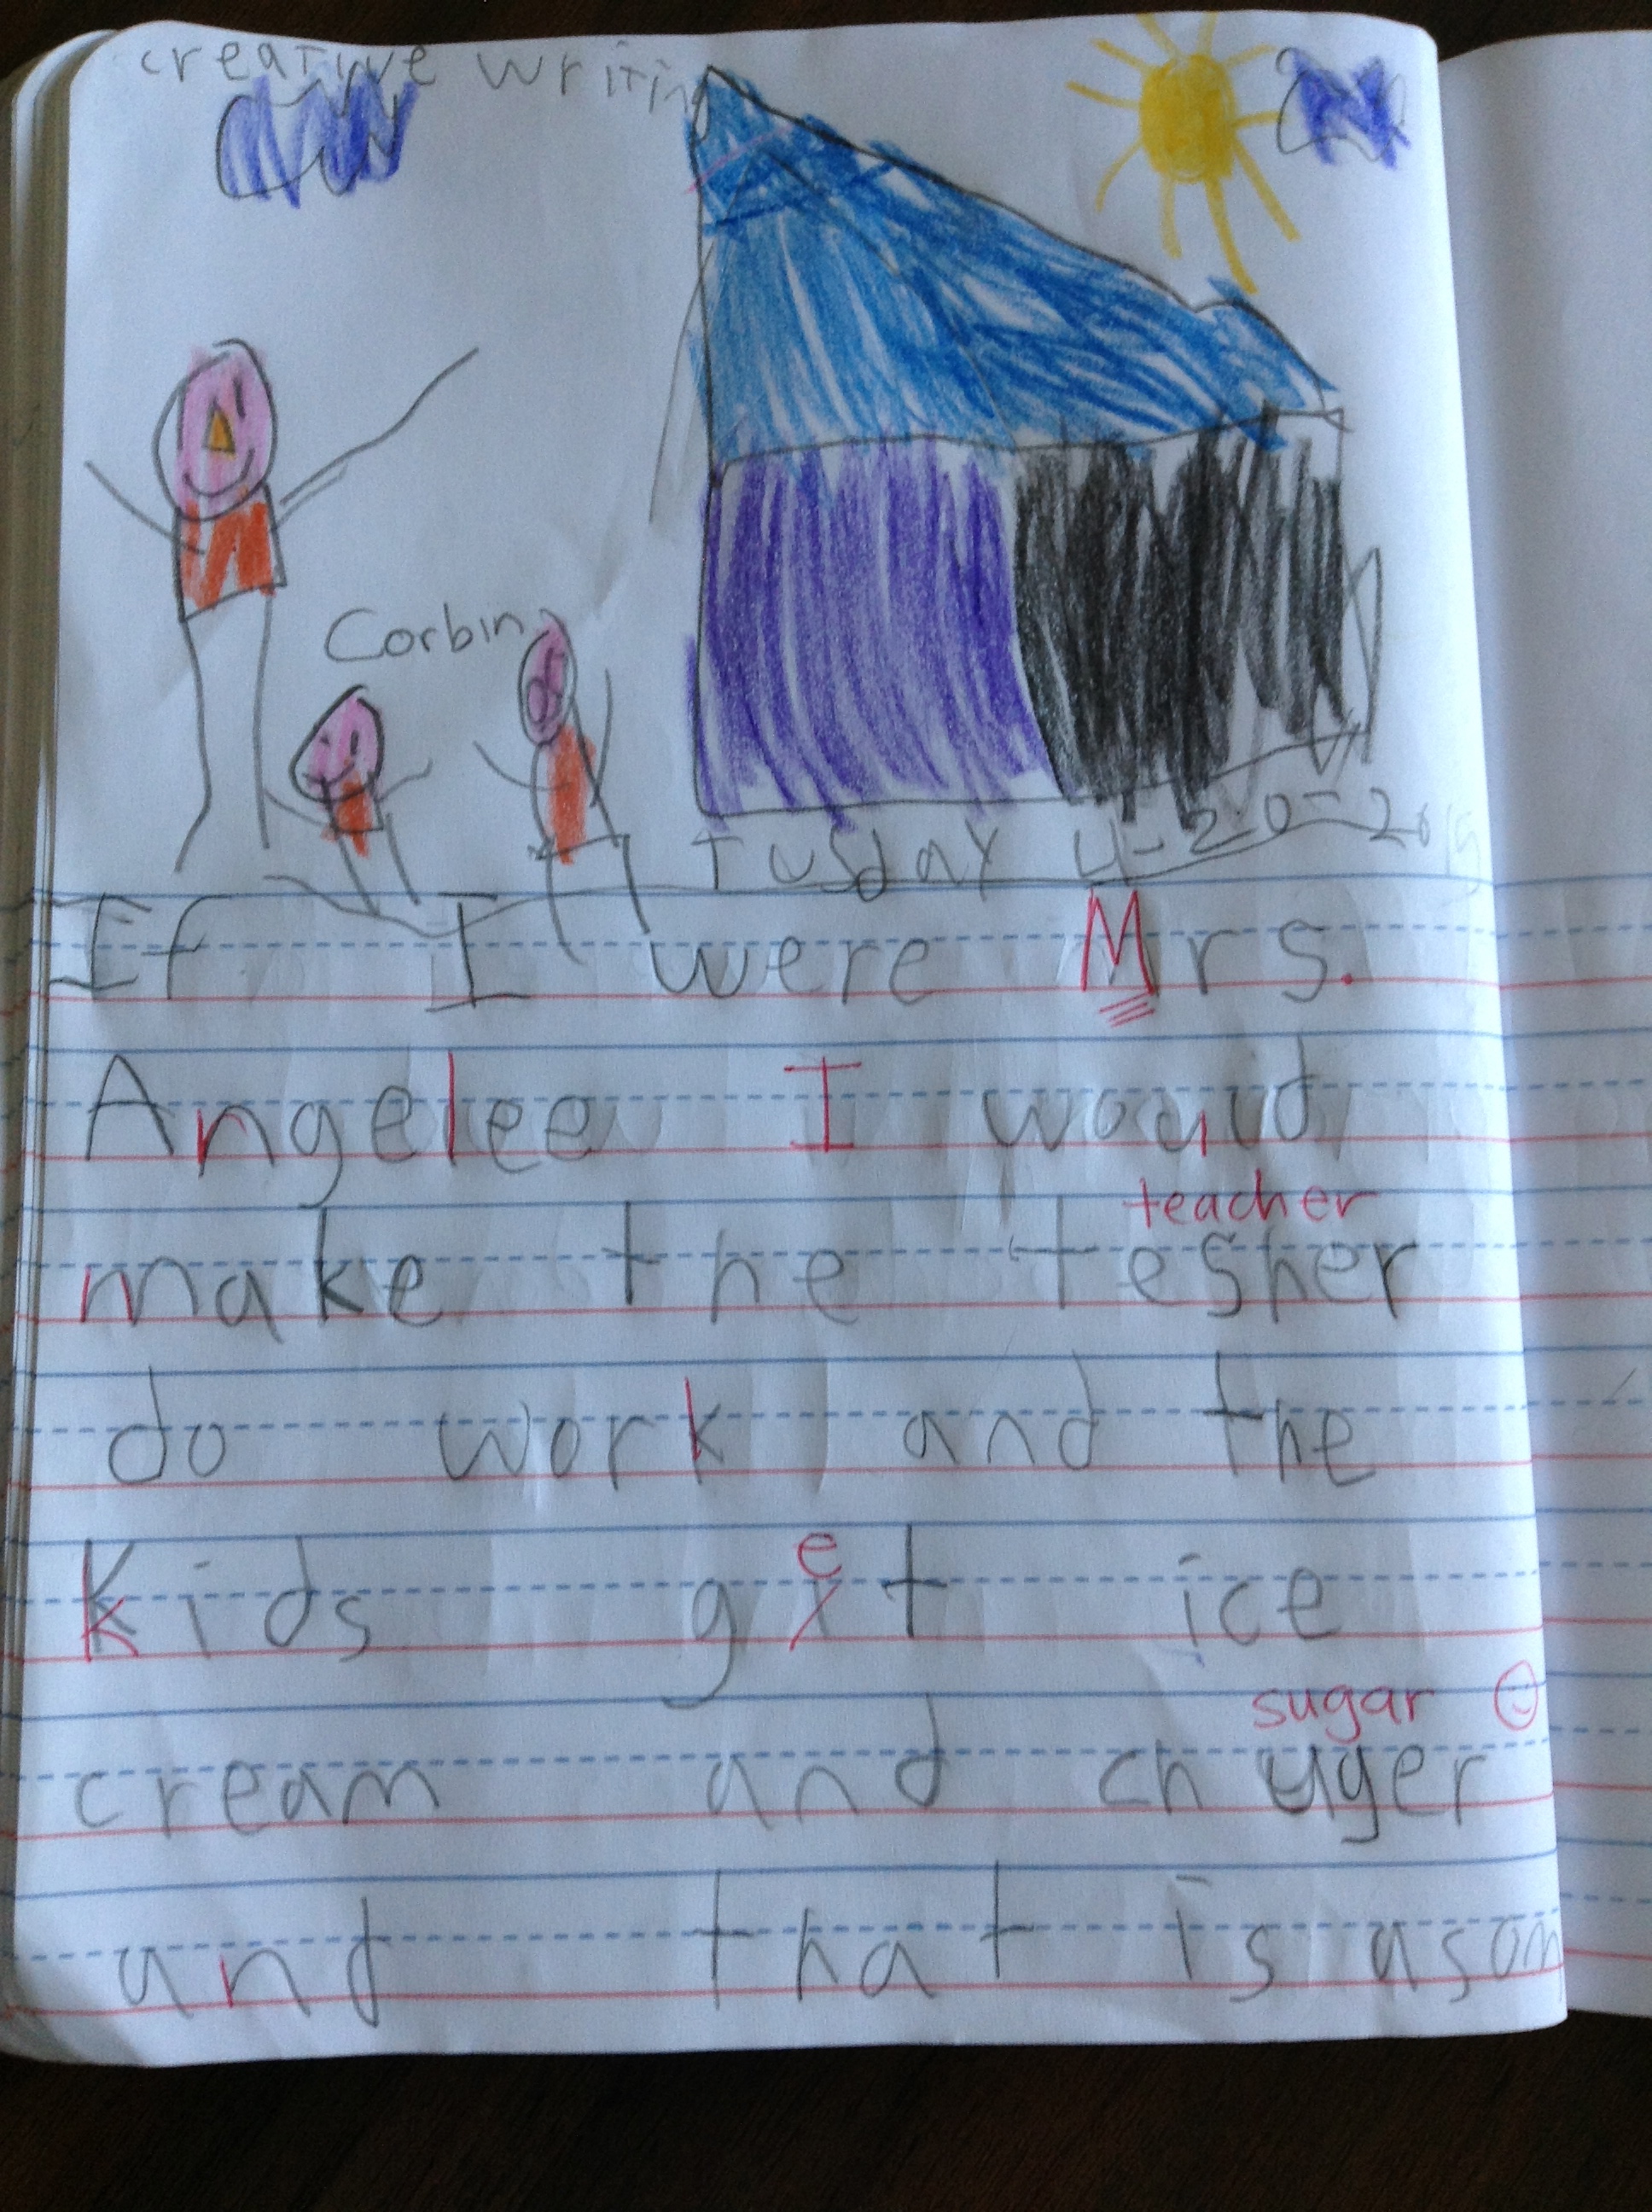 creative writing
Corbin
Tusday 4-20-2015
If I were Mrs.
Angelee I would
teacher
make the tesher
do work and the
e
kids git ice
sugar
cream and chuger
and that is asom